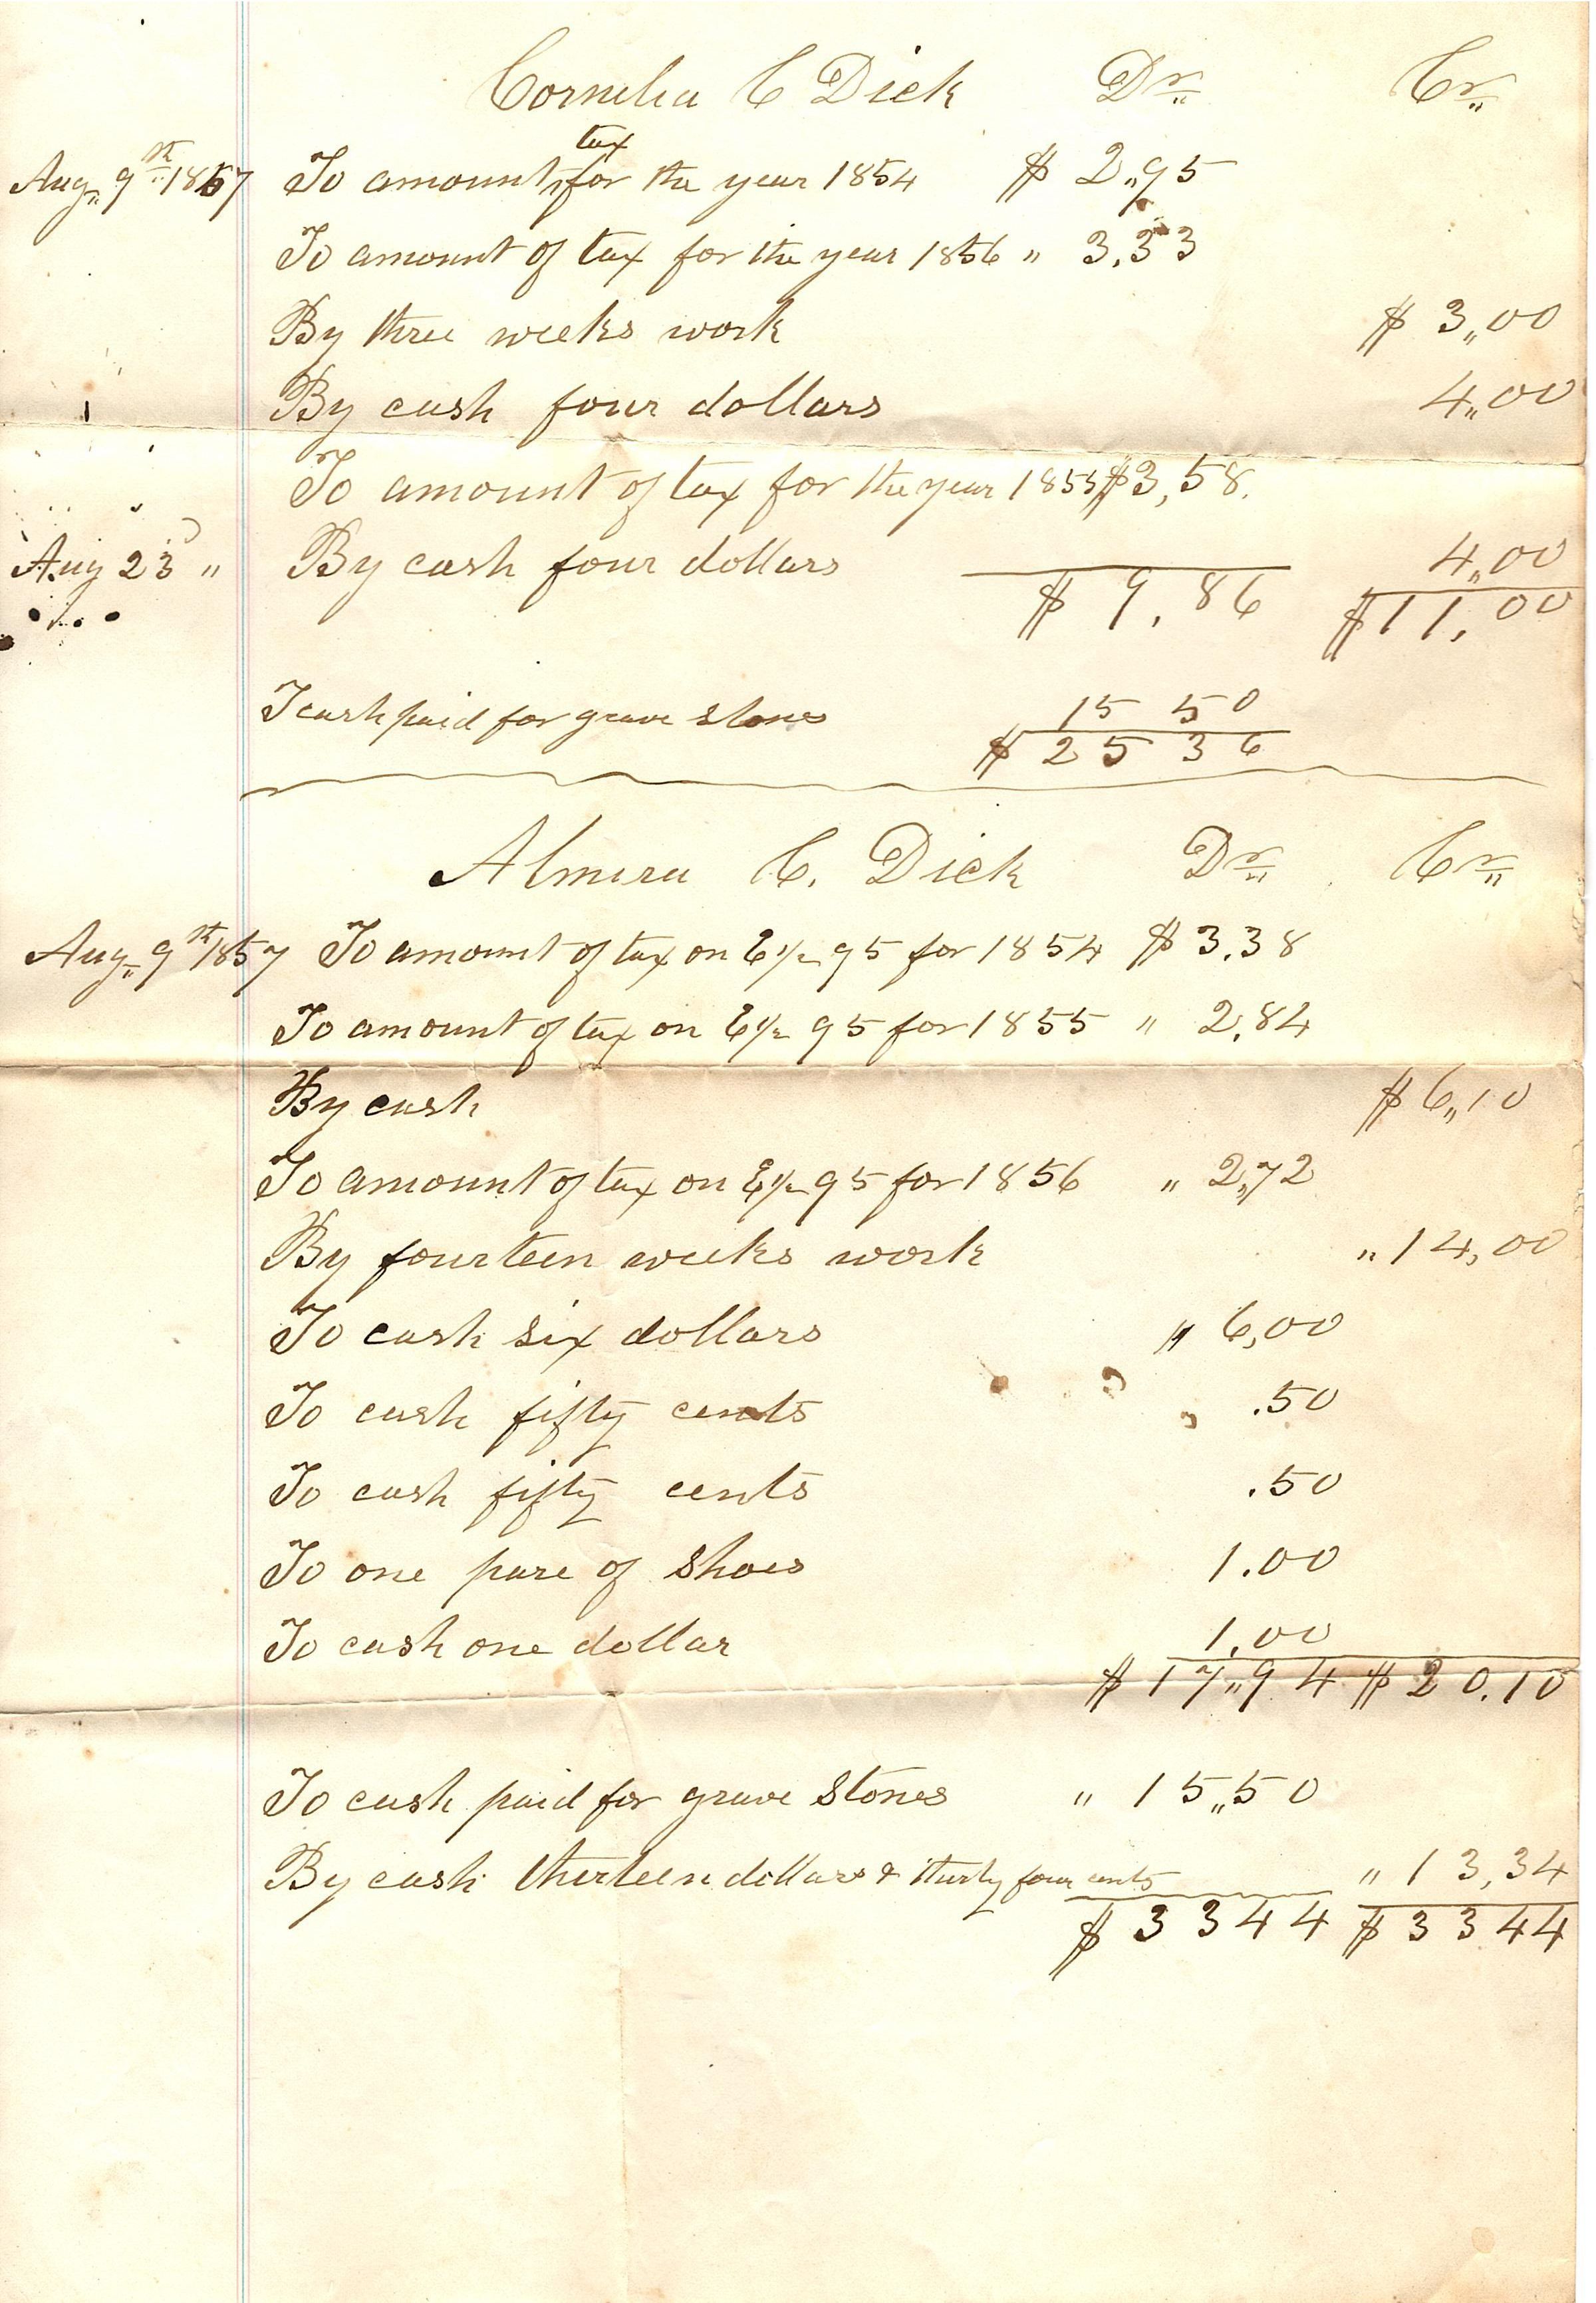 Cornelia C Dick Dr. Cr.
tax
Aug. 9th 1857 To amount for the year 1854 $ 2,95
To amount of tax for the year 1856 " 3.33
By three weeks work $ 3,00
By cash four dollars 4,00
To amount of tax for the year 1855 $3,58.
Aug 23 " By cash four dollars 4,00
$ 9,86 $11,00
T cash paid for grave stones 15 50
$ 25 36
Almira C. Dick Dr. Cr.
Aug. 9th 1857 To amount of tax on 95 for 1854 $ 3.38
To amount of tax on 95 for 1855 " 2.84
By cash $ 6,10
To amount of tax on 95 for 1856 " 2,72
By fourteen weeks work " 14,00
To cash six dollars " 6,00
To cash fifty cents .50
To cash fifty cents .50
To one pare of Shoes 1.00
To cash one dollar 1.00
$ 17,94 $ 20.10
To cash paid for grave Stones " 15,50
By cash therteen dollars & thirty four cents " 13,34
$ 33 44 $ 33 44